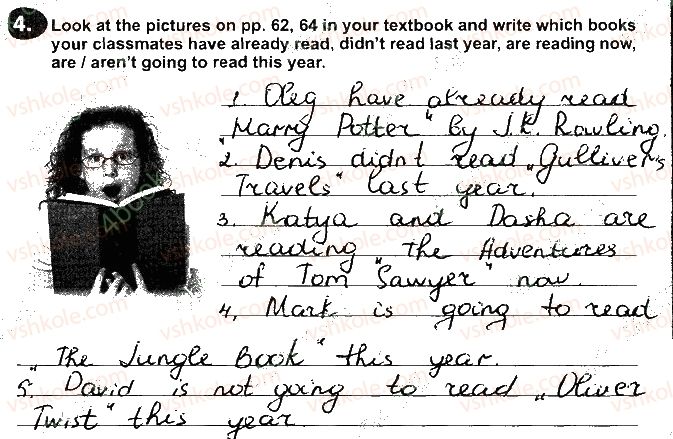 4. Look at the pictures on pp. 62, 64 in your textbook and write which books
your classmates have already read, didn't read last year, are reading now,
are / aren't going to read this year.
1. Oleg have already read
„Harry Potter" by J.K. Rowling.
2. Denis didnt read „Gulliver's
Travels" last year.
3. Katya and Dasha are
reading „The Adventures
of Tom Sawyer" now.
4, Mark is going to read
„The Jungle Book" this year.
5. David is not going to read „Oliver
Twist" this year.
vshkole.com
4book